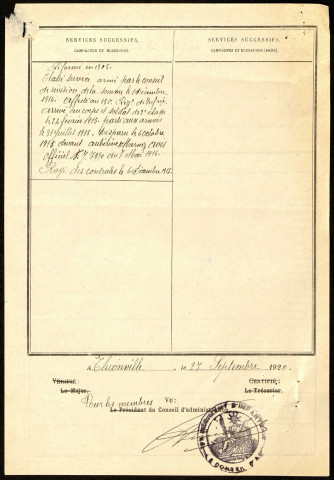 SERVICES SUCCESSIFS,
CAMPAGNES ET BLESSURES
SERVICES SUCCESSIFS,
CAMPAGNES ET BLESSURES (SUITE).
Réformé en 1905.
service armé par le conseil
de révision de la Somme le décembre
1914. affecté au 151e Régt
arrivé au corps et soldat de 2e classe
le 24 février 1915. parti aux armées
le 31 juillet 1915. Disparu le 6 octobre
1915 devant Auberive (Marne)
officiel du Mai 1916.
Rayé des contrôles le 6 décembre 1915.
A Thionville, le 27 Septembre 1920.
VÉRIFIÉ :
CERTIFIÉ :
Le Major.
Le Trésorier.
Pour les membres VU :
Le Président du Conseil d'administration